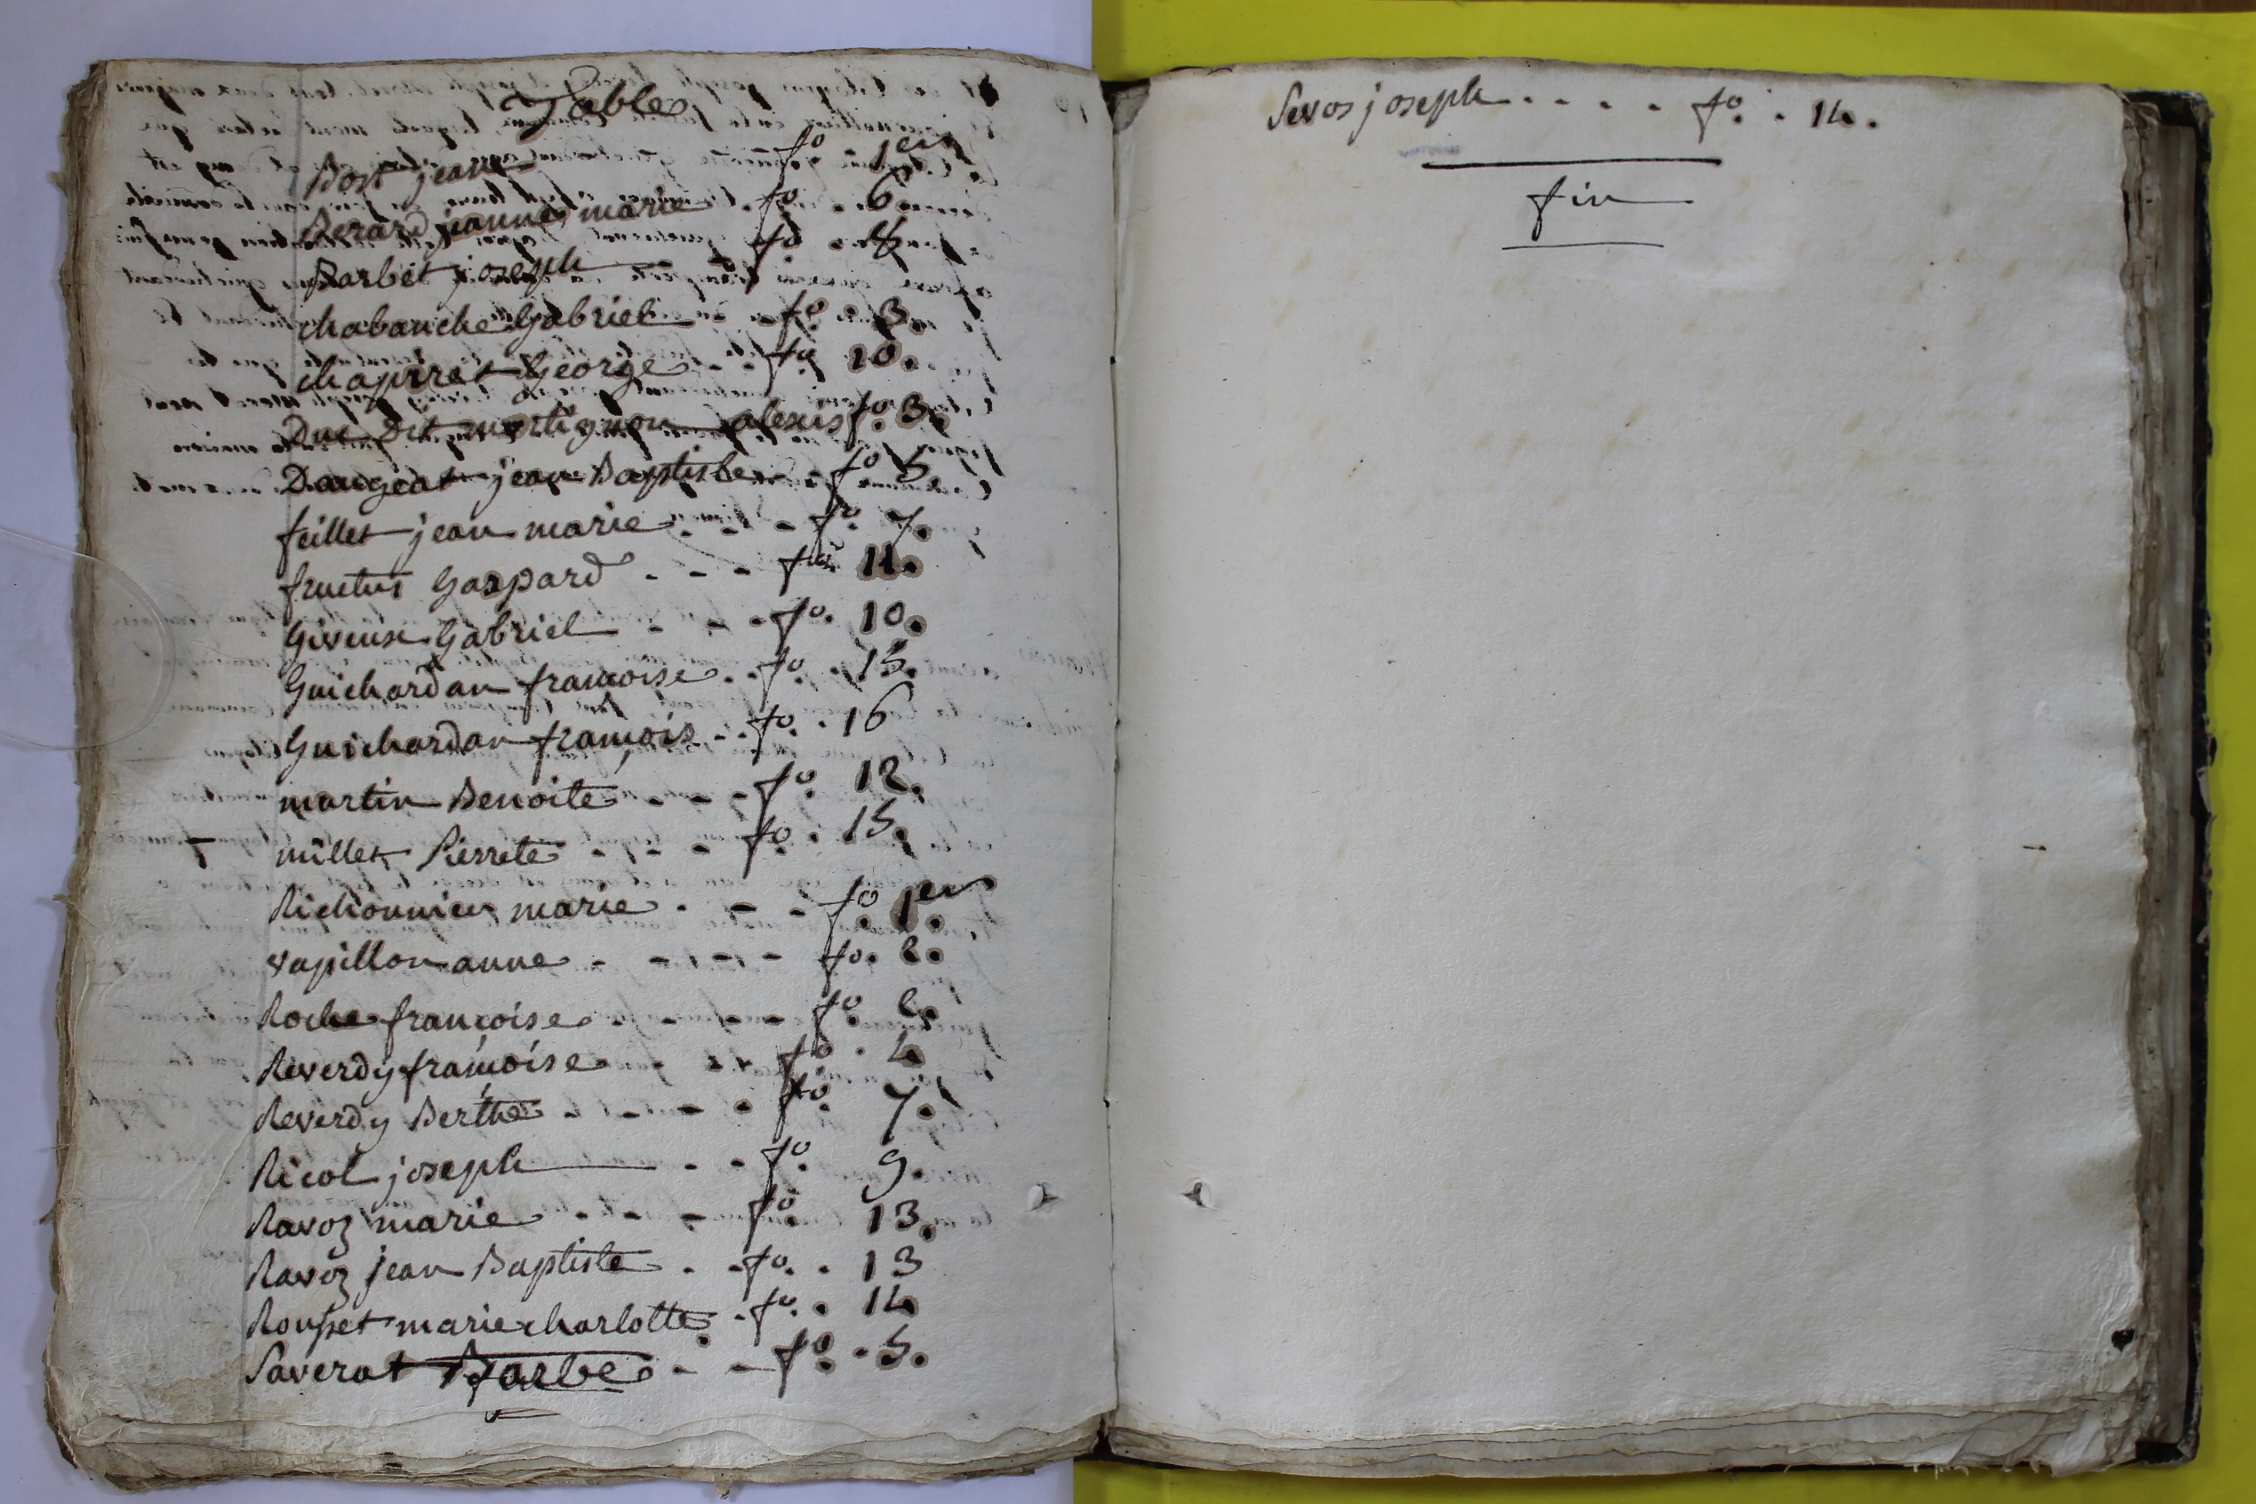 Table
Bost jeanne fo. 1er
Berard jeanne marie fo. 6
Barbet joseph fo. 15
chabanche Gabriel - - fo. 3.
chapiret George - - fo 10.
Duc Dit martignon alexis fo. 3.
Daugeat jean Baptiste - - fo 5.
feillet jean marie - - - fo 7.
fructus Gaspard - - - fo. 11.
Giveuse Gabriel - - - fo. 10.
Guichardan francoise - - fo. 15.
Guichardan françois - - fo. 16
martin Benoite - - - fo. 12.
millet Pierrete - - - fo. 15.
Richonnier marie - - - fo 1er
vapillon anne - - - - fo. 2.
Roche francoise - - - - fo. 2.
Reverdy françoise - - fo. 4
Reverdy Berthe - - - - fo. 7.
Ricol joseph - - fo. 9.
Ravoz marie - - - fo. 13.
Ravoz jean Baptiste - - fo. 13
Rousset marie charlotte - fo. 14
Saverat Barbe - - fo. 5.
Sevos joseph - - - - fo. 14.
fin